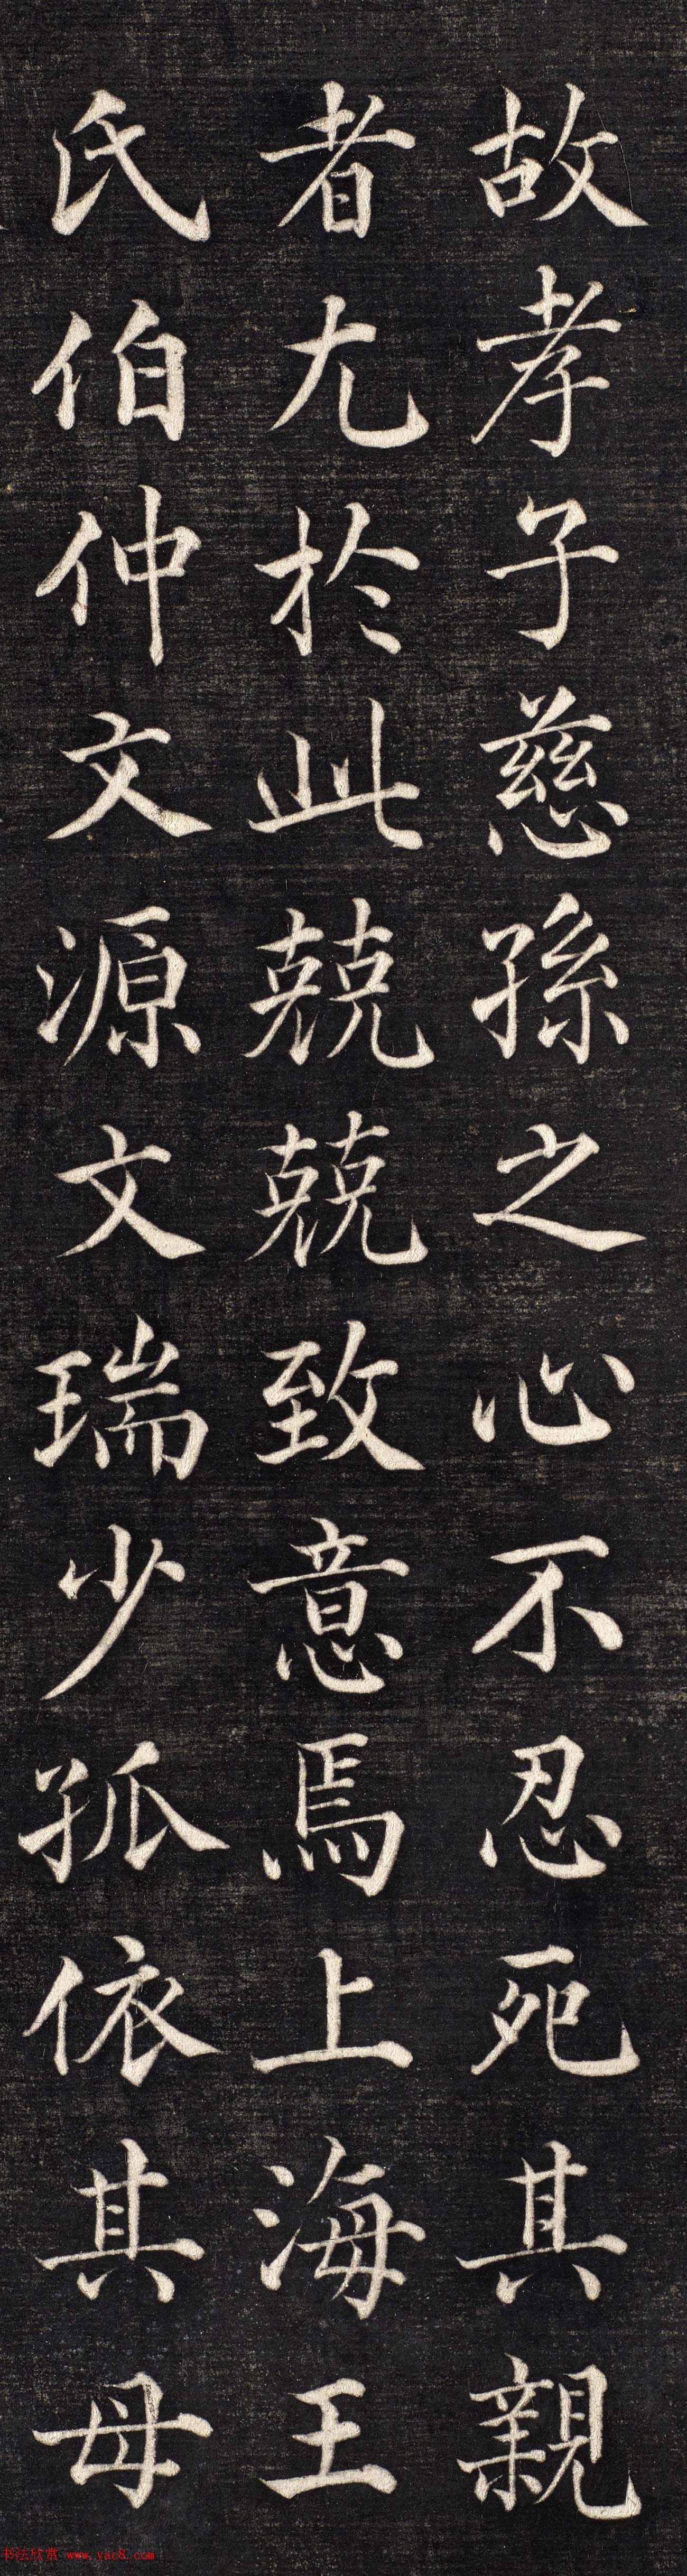 故孝子慈孫之心不忍死其親
者尤於此兢兢致意焉上海王
氏伯仲文源文瑞少孤依其母
书法欣赏 www.yac8.com